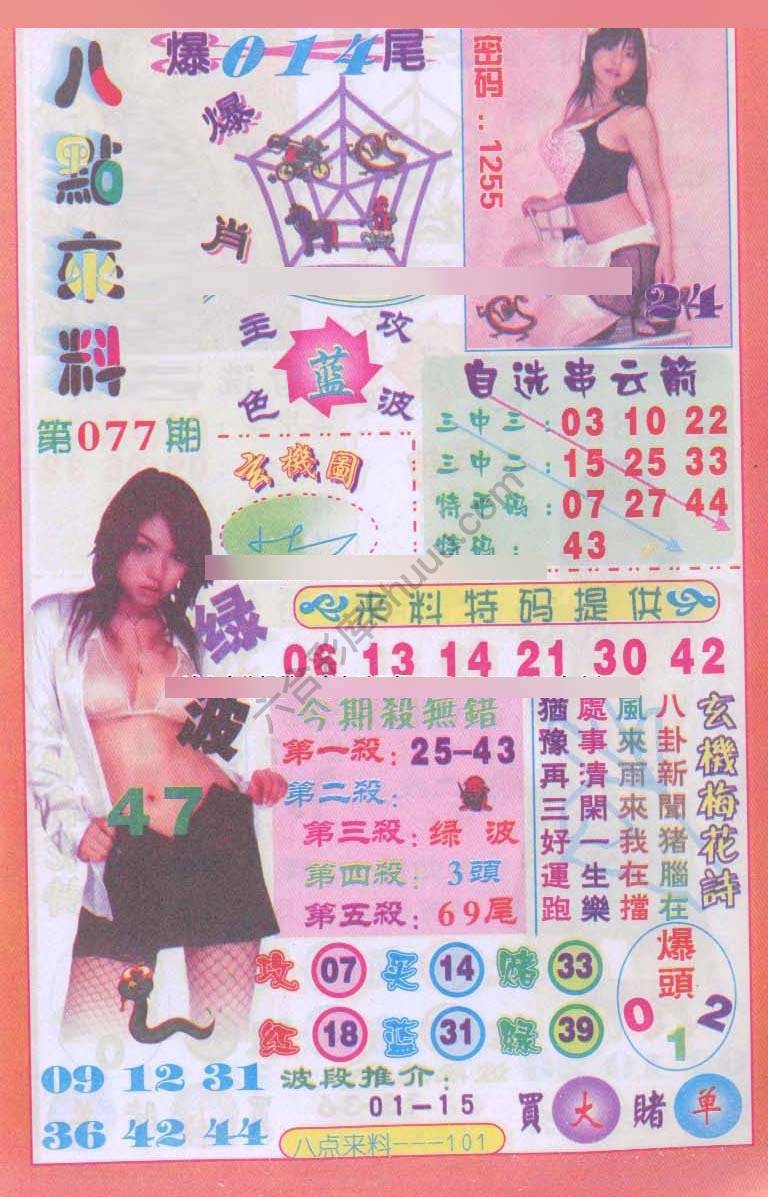 八點來料
爆014尾
爆肖
密码：1255
24
主攻
蓝
色波
第077期
玄機圖
自选串云箭
三中三：03 10 22
三中二：15 25 33
特平码：07 27 44
特码：43
來料特码提供
06 13 14 21 30 42
绿波
47
今期殺無錯
第一殺：25-43
第二殺：
第三殺：绿波
第四殺：3頭
第五殺：69尾
玄機梅花詩
八卦新聞猪腦在
風來雨來我在擋
處事清閑一生樂
猶豫再三好運跑
攻07 买14 赌33
红18 蓝31 绿39
爆頭
0 1 2
09 12 31
36 42 44
波段推介：
01-15
買大賭单
八点来料---101
六合彩库shuuu.com